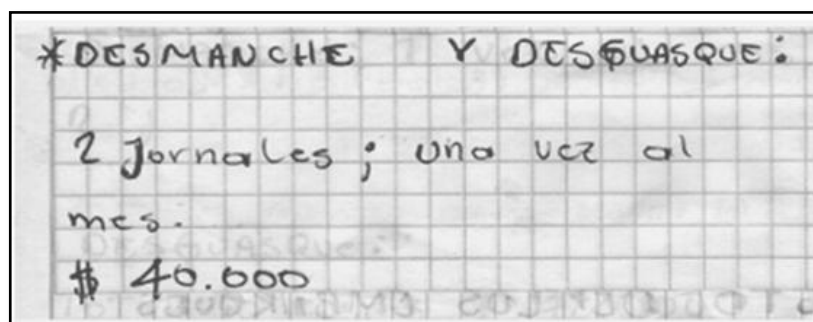 *DESMANCHE Y DESGUASQUE:
2 Jornales; una vez al
mes.
$ 40.000